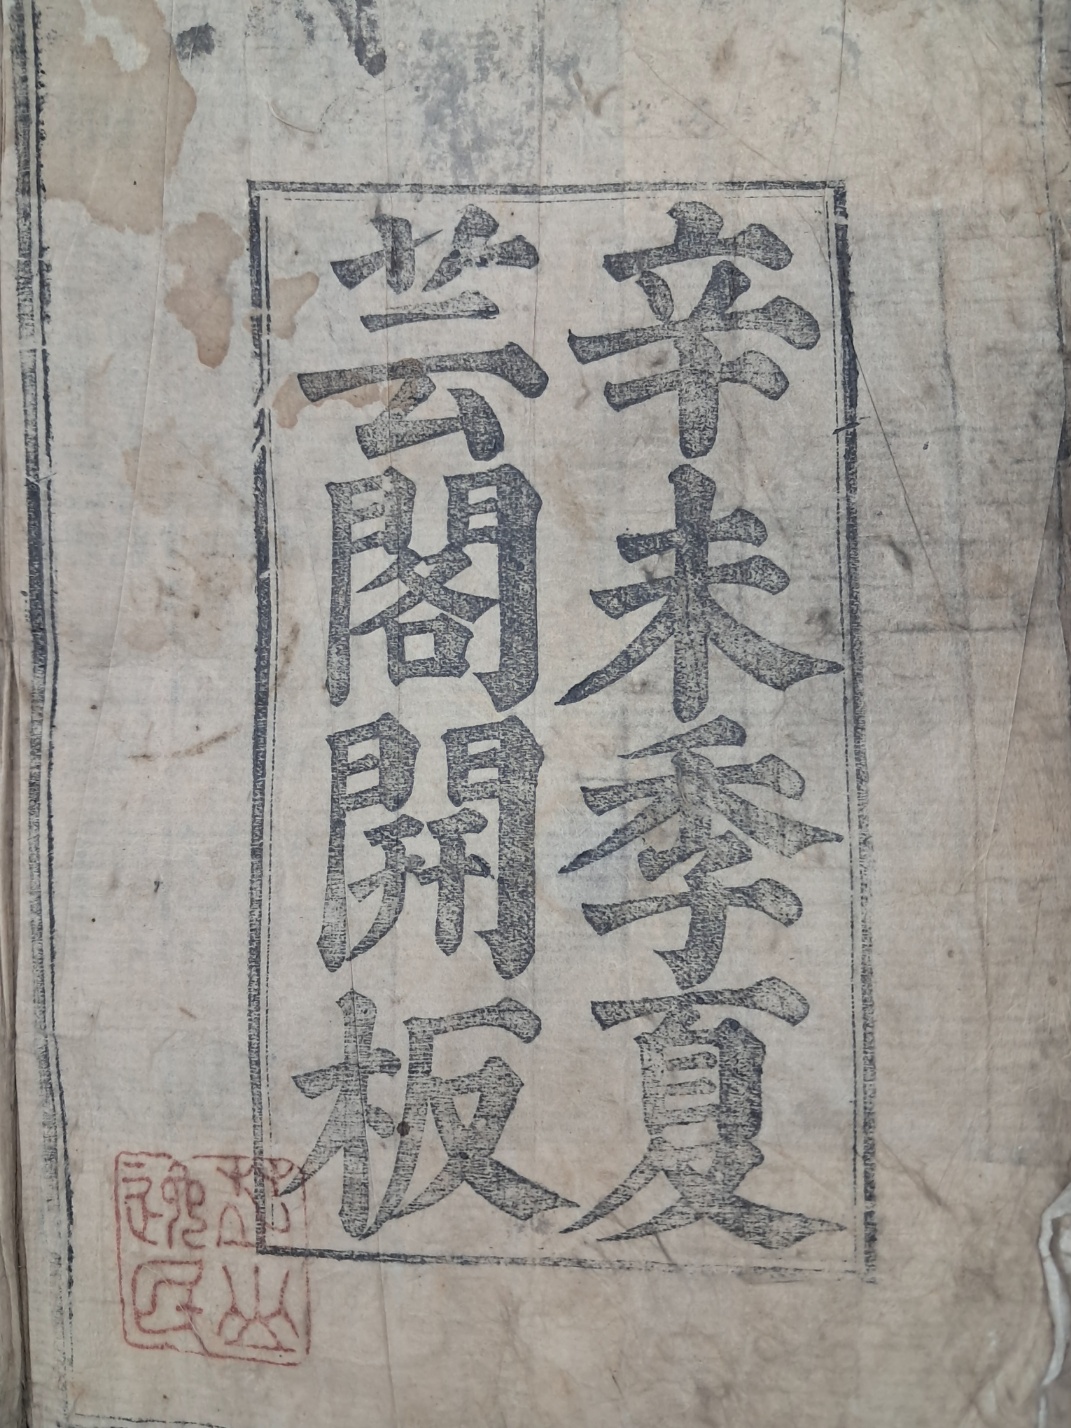 辛未季夏
芸閣開板